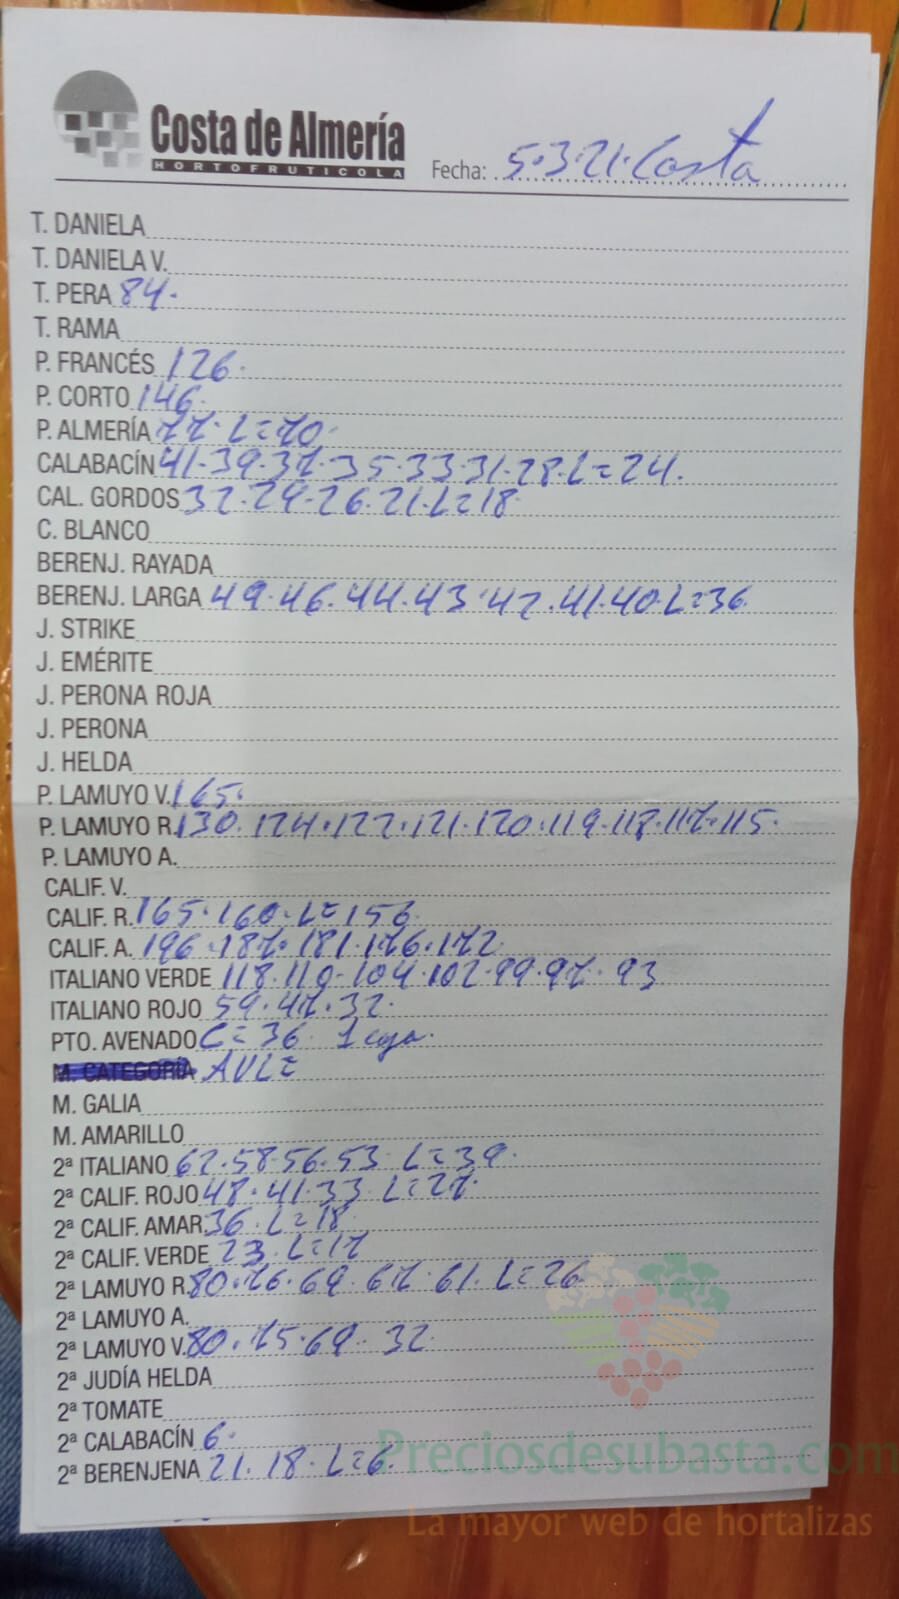 Costa de Almería
HORTOFRUTICOLA
Fecha: 5.3.21. Costa
T. DANIELA
T. DANIELA V.
T. PERA 84.
T. RAMA
P. FRANCÉS 126.
P. CORTO 146.
P. ALMERÍA 77. L=70.
CALABACÍN 41.39.37.35.33.31.28.L=24.
CAL. GORDOS 32.29.26.21.L=18
C. BLANCO
BERENJ. RAYADA
BERENJ. LARGA 49.46.44.43.42.41.40.L=36.
J. STRIKE
J. EMÉRITE
J. PERONA ROJA
J. PERONA
J. HELDA
P. LAMUYO V. 165.
P. LAMUYO R. 130.124.122.121.120.119.118.117.115.
P. LAMUYO A.
CALIF. V.
CALIF. R. 165.160.L=156
CALIF. A. 196.187.181.176.172
ITALIANO VERDE 118.110.104.102.99.97.93
ITALIANO ROJO 59.47.32.
PTO. AVENADO C=36. 1 caja.
M. CATEGORÍA AVL=
M. GALIA
M. AMARILLO
2ª ITALIANO 62.58.56.53 L=39.
2ª CALIF. ROJO 48.41.33 L=27.
2ª CALIF. AMAR. 36.L=18
2ª CALIF. VERDE 23.L=17
2ª LAMUYO R. 80.76.69.67.61.L=26
2ª LAMUYO A.
2ª LAMUYO V. 80.75.69.32
2ª JUDÍA HELDA
2ª TOMATE
2ª CALABACÍN 6.
2ª BERENJENA 21.18.L=6.
Preciosdesubasta.com
La mayor web de hortalizas